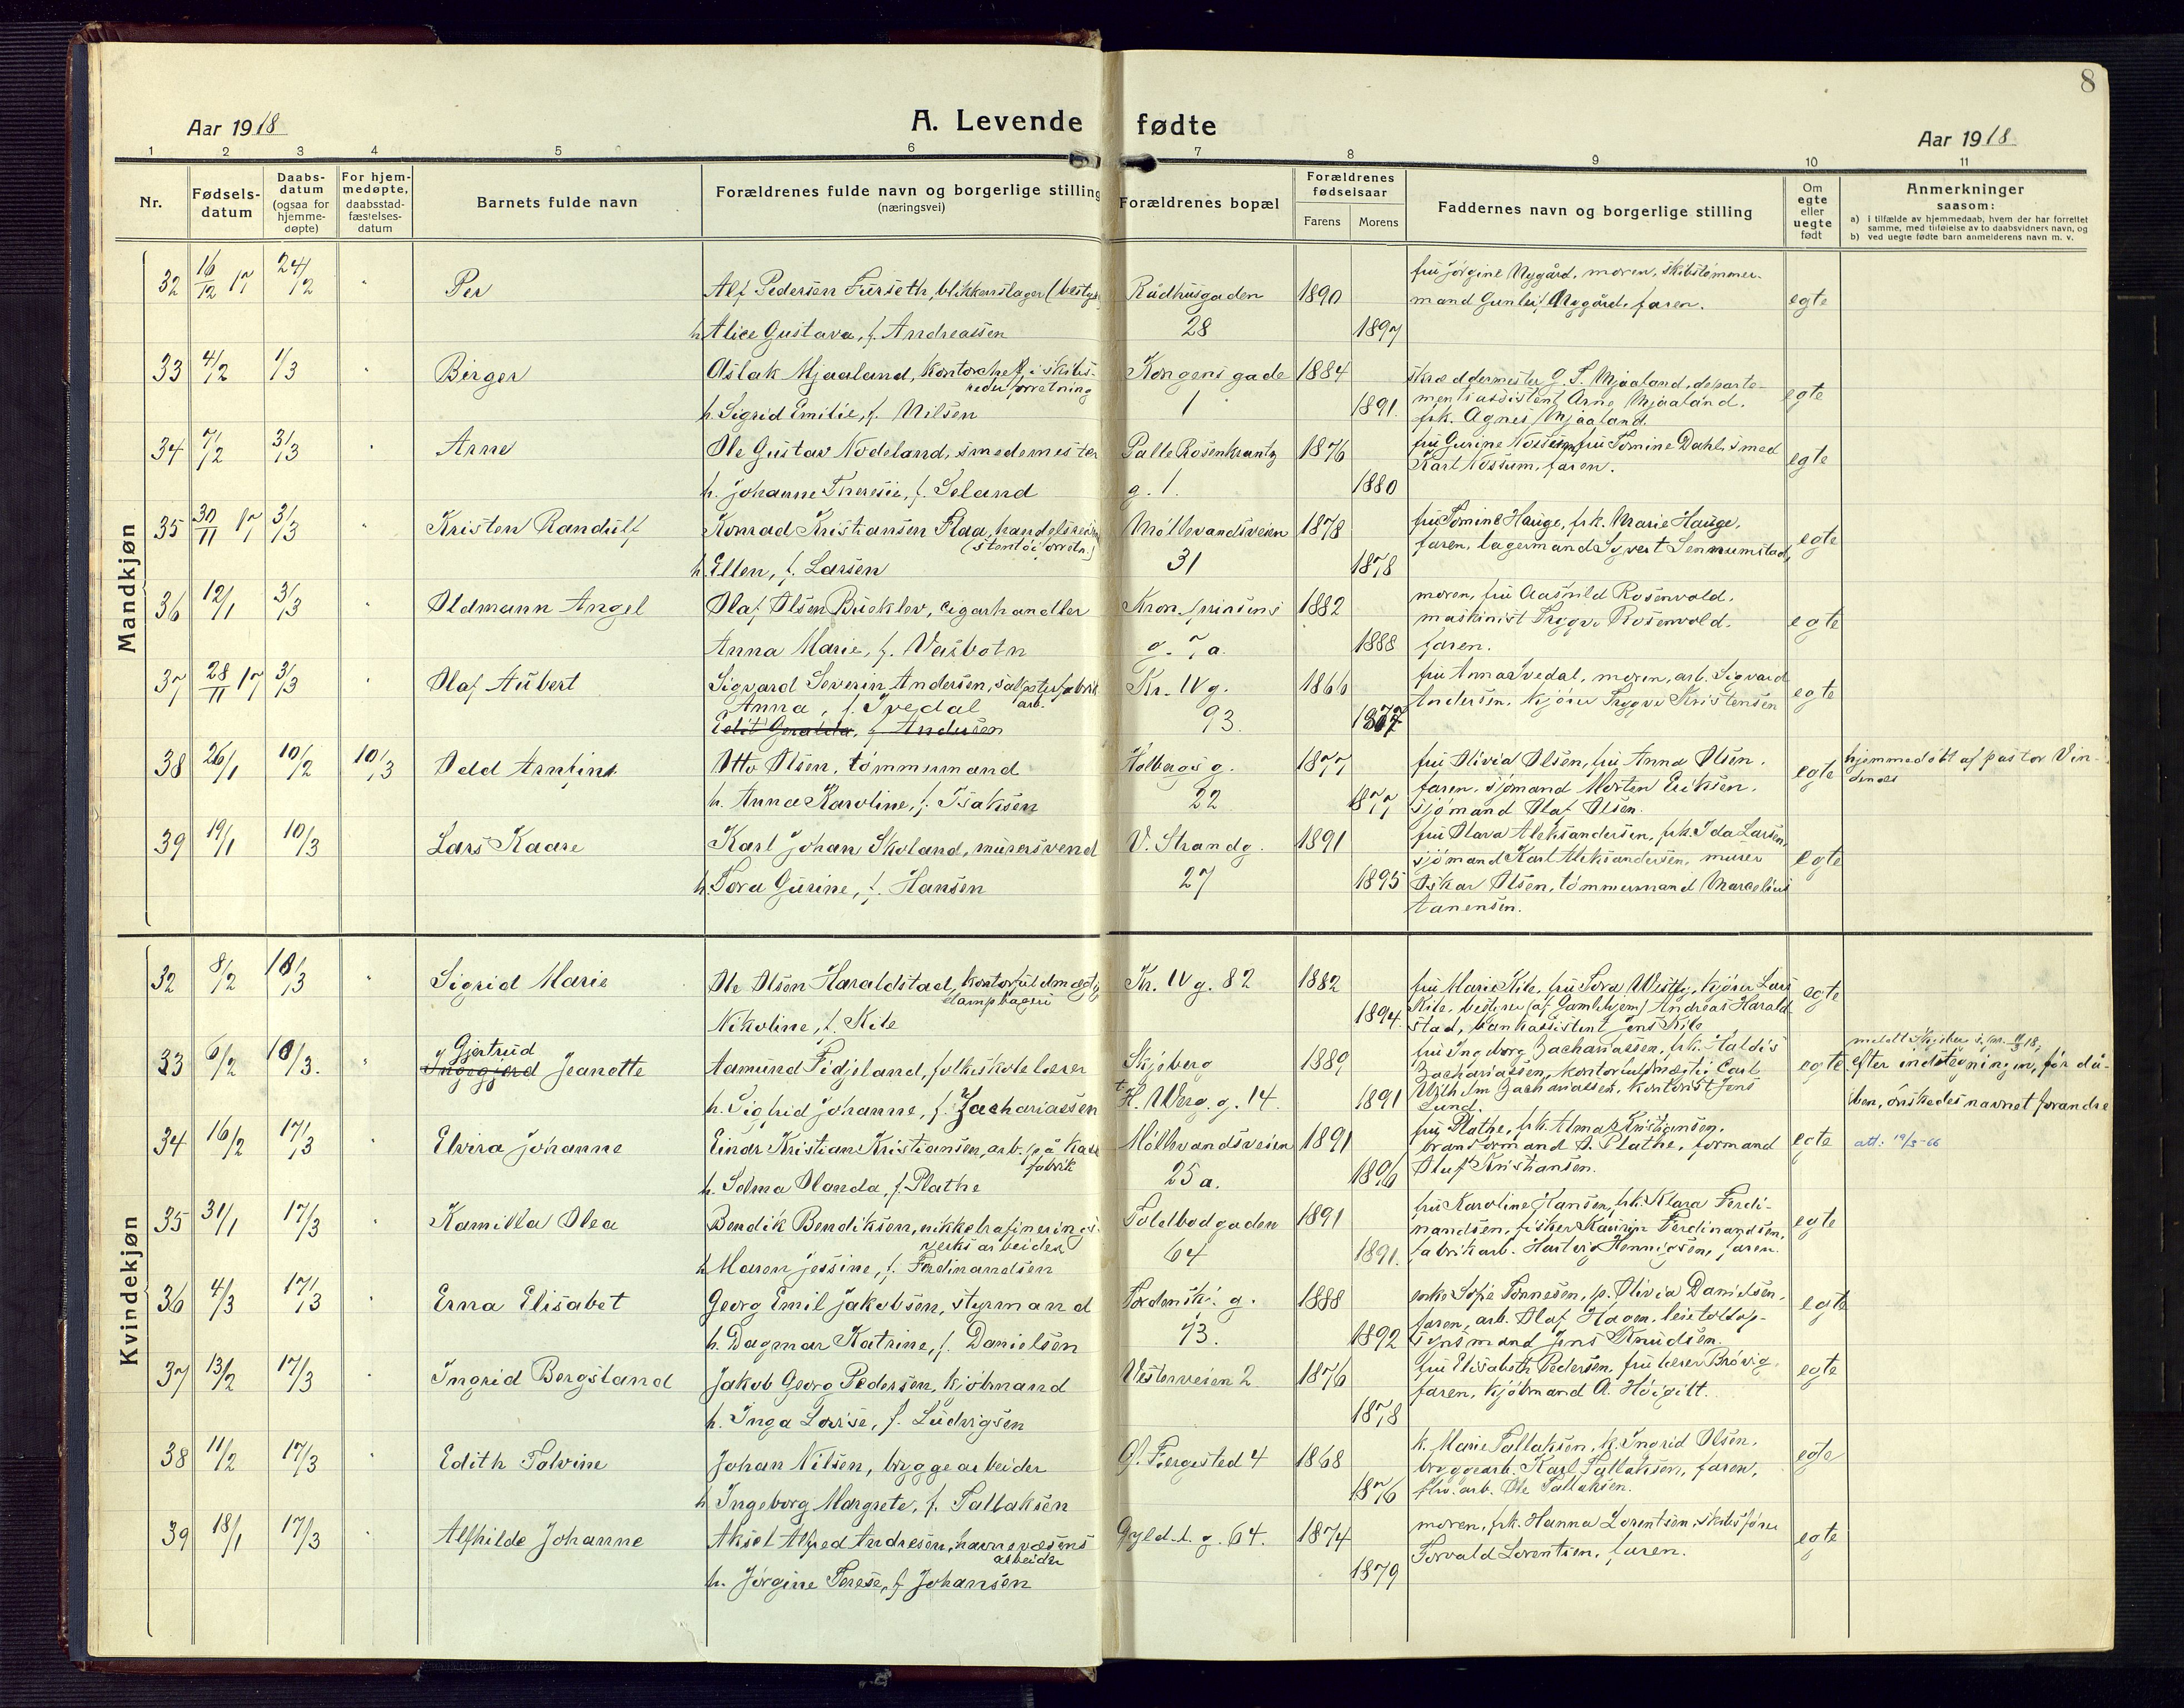 8
Aar 1918
A. Levende fødte
Aar 1918
1 2 3 4 5 6 7 8 9 10 11
Nr.
Fødsels-
datum
Daabs-
datum
(ogsaa for
hjemme-
døpte)
For hjem-
medøpte,
daabsstad-
fæstelses-
datum
Barnets fulde navn
Forældrenes fulde navn og borgerlige stilling
(næringsvei)
Forældrenes bopæl
Forældrenes
fødselsaar
Farens Morens
Faddernes navn og borgerlige stilling
Om
egte
eller
uegte
født
Anmerkninger
saasom:
a) i tilfælde av hjemmedaab, hvem der har forrettet
samme, med tilføielse av to daabsvidners navn, og
b) ved uegte fødte barn anmelderens navn m. v.
Mandkjøn
32 16/12 17 24/2 " Per
Alf Pedersen Furseth, blikkenslager (besty
Rådhusgaden 1890
fru Jørgine Nygård, moren, skibstømmer-
mand Gunleif Nygård, faren. egte
h. Alice Gustava, f. Andreassen 28 1897
33 4/2 1/3 Birger
Aslak Mjaaland, kontorchef i skibs-
rederforretning
Kongens gade 1884
skræddermester G. T. Mjaaland, departe-
mentsassistent Arne Mjaaland, egte
frk. Agnes Mjaaland.
h. Sigrid Emilie, f. Nilsen 1 1891.
34 7/2 3/3 " Arne
Ole Gustav Nodeland, smedemester
Palle Rosenkrantz 1876
fru Gurine Nossum, fru Tomine Dahl, smed
Karl Nossum, faren. egte
h. Johanne Theresie, f. Seland g. 1. 1880
35 30/11 17 3/3 " Kristen Randulf
Konrad Kristiansen Flaa, handelsreis
(stentøiforretn.)
Møllevandsveien 1878
fru Tomine Hauge, frk. Marie Hauge,
faren, lagermand Syvert Sennumstad, egte
h. Ellen, f. Larsen 31 1878
36 12/1 3/3 " Oldmann Angel
Olaf Olsen Bueklev, cigarhandler
Kronprinsens 1882
moren, fru Aashild Rosenvold,
maskinist Trygve Rosenvold, egte
faren.
Anna Marie, f. Veisbotn g. 7 a. 1888
37 28/11 17 3/3 " Olaf Aubert
Sigvard Severin Andersen, salpeterfabrik
arb.
Kr. IV g. 1866
fru Anna Tvedal, moren, arb. Sigvard
Andersen, kjører Trygve Kristensen egte
Anna, f. Tvedal
Edit Geralda, f. Andersen 93. 1877
38 26/1 10/2 10/3 Odd Arnfinn
Otto Olsen, tømmermand
Holbergs g. 1877
fru Olivia Olsen, fru Anna Olsen,
faren, sjømand Morten Eriksen,
sjømand Olaf Olsen. egte
hjemmedøbt af pastor Vin-
denes
h. Anna Karoline, f. Isaksen 22 1877
39 19/1 10/3 Lars Kaare
Karl Johan Skoland, murersvend
V. Strandg. 1891
fru Olava Aleksandersen, frk. Ida Larsen,
sjømand Karl Aleksandersen, murer
Oskar Olsen, tømmermand Marcelius
Aanensen. egte
h. Tora Gurine, f. Hansen 27 1895
Kvindekjøn
32 8/2 10/3 " Sigrid Marie
Ole Olsen Haraldstad, kontorfuldmægtig
dampbageri
Kr. IV g. 82 1882
fru Marie Kile, fru Tora Westby, kjører Lars
Kile, bestyrer (af Gamlehjem) Andreas Harald-
stad, bankassistent Jens Kile egte
Nikoline, f. Kile 1894.
33 6/2 10/3. " Gjertrud
Ingegjerd Jeanette
Aamund Fidjeland, folkeskolelærer
Skjeberg 1889
fru Ingeborg Zachariassen, frk. Haldis
Zachariassen, kontorfuldmægtig Carl
Wilhelm Zachariassen, kontorist Jens
Lund. egte
efter indtegningen, før då-
ben, ønskedes navnet forandre
h. Sighrid Johanne, f. Zachariassen H. Werg. g. 14. 1891
34 16/2 17/3 " Elvira Johanne
Einar Kristian Kristiansen, arb. på kass
fabrik
Møllevandsveien 1891
fru Plathe, frk. Alma Kristiansen,
brandformand O. Plathe, formand
Oluf Kristiansen. egte
att: 19/5-66
h. Selma Olanda, f. Plathe 25 a. 1896
35 31/1 17/3 " Kamilla Olea
Bendik Bendiksen, nikkelrafinerings-
verksarbeider
Toldbodgaden 1891
fru Karoline Hansen, frk. Klara Ferdi-
nandsen, fisker Kaurin Ferdinandsen,
fabrikarb. Hartvig Hennigsen, faren. egte
h. Maren Jessine, f. Ferdinandsen 64 1891.
36 4/3 17/3 " Erna Elisabet
Georg Emil Jakobsen, styrmand
Tordensk. g. 1888
enke Sofie Tønnesen, p. Olivia Danielsen,
faren, arb. Olaf Hagen, leietoldop-
synsmand Jens Knudsen. egte
h. Dagmar Katrine, f. Danielsen 73. 1892
37 13/2 17/3 " Ingrid Bergsland
Jakob Georg Pedersen, kjøbmand
Vesterveien 2 1876
fru Elisabeth Pedersen, fru lærer Brøvig,
faren, kjøbmand A. Høigilt. egte
h. Inga Lovise, f. Ludvigsen 1878
38 11/2 17/3 " Edith Tolvine
Johan Nilsen, bryggearbeider
Gl. Tergested 4 1868
k. Marie Tallaksen, k. Ingrid Olsen,
bryggearb. Karl Tallaksen, faren,
elv. arb. Ole Tallaksen. egte
h. Ingeborg Margrete, f. Tallaksen 1876
39 18/1 17/3 " Alfhilde Johanne
Aksel Alfred Andresen, havnevæsens
arbeider
Gyld. l. g. 64. 1874
moren, frk. Hanna Lorentsen, skibsfører
Torvald Lorentsen, faren. egte
h. Jørgine Terese, f. Johansen 1879